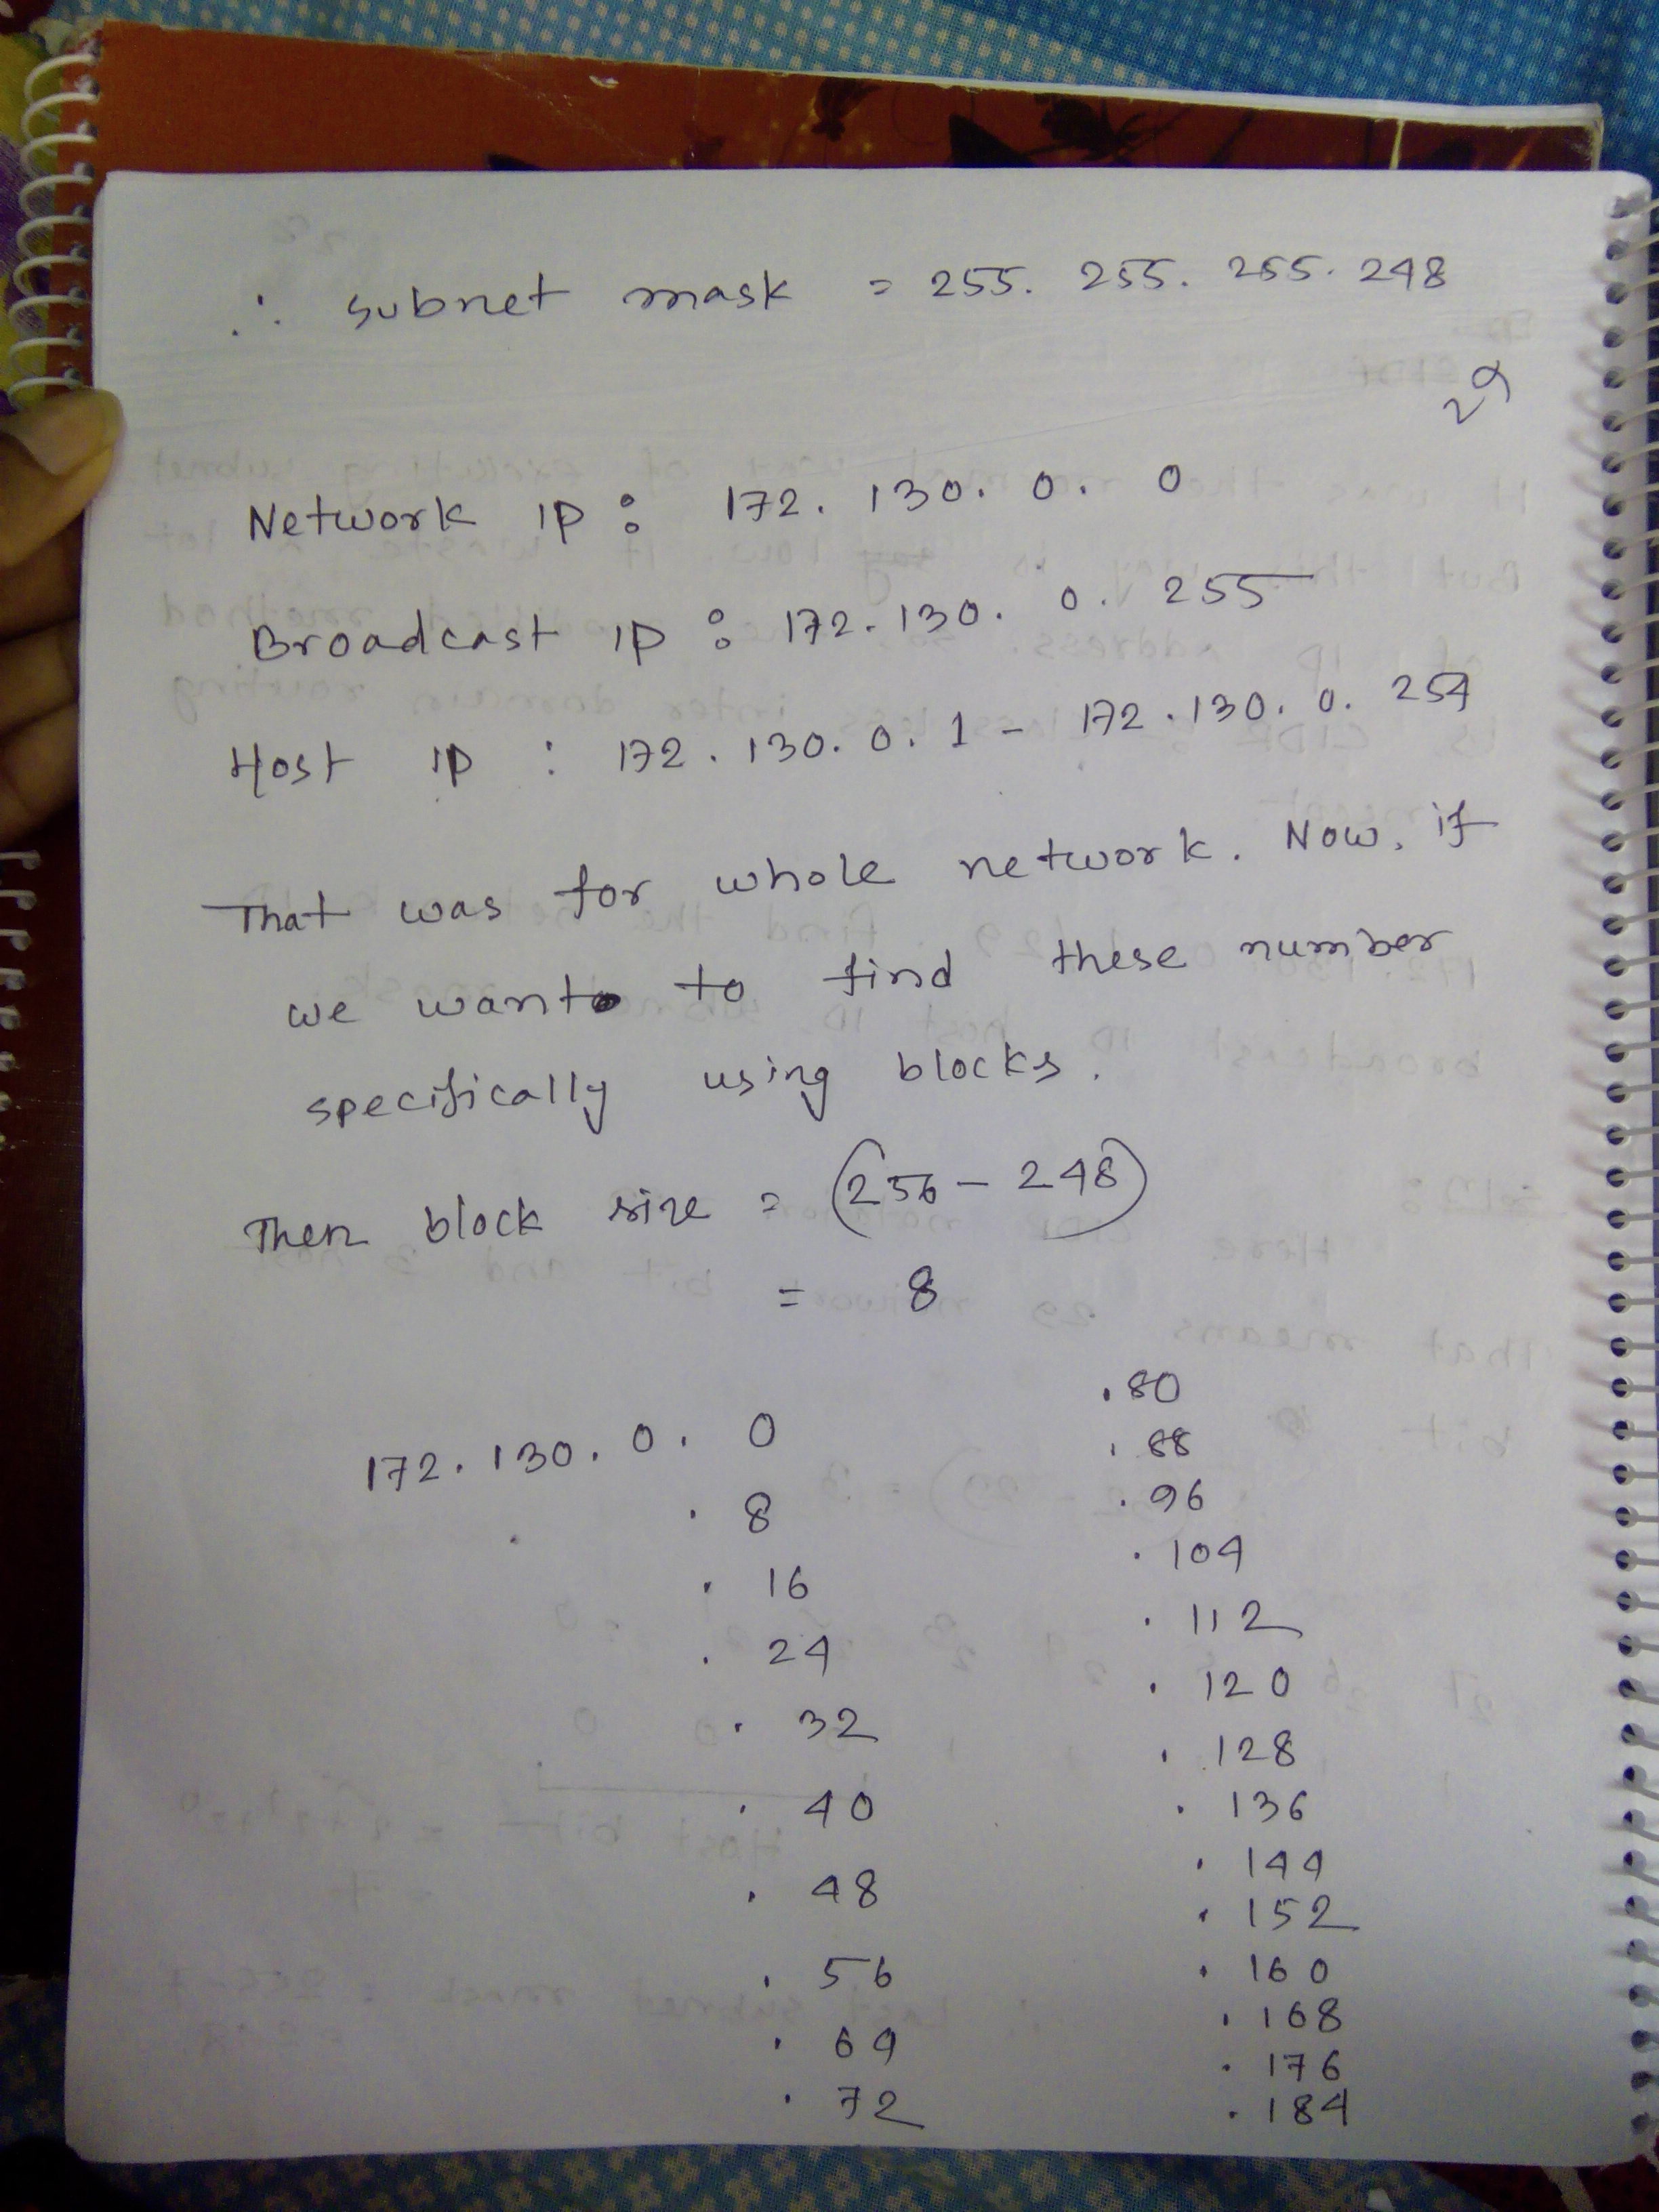 ∴ subnet mask = 255. 255. 255. 248
29
Network IP : 172. 130. 0. 0
Broadcast IP : 172. 130. 0. 255
Host IP : 172. 130. 0. 1 - 172. 130. 0. 254
That was for whole network. Now, if
we want to find these number
specifically using blocks.
Then block size = (256 - 248)
= 8
172. 130. 0. 0
. 8
. 16
. 24
. 32
. 40
. 48
. 56
. 64
. 72
. 80
. 88
. 96
. 104
. 112
. 120
. 128
. 136
. 144
. 152
. 160
. 168
. 176
. 184